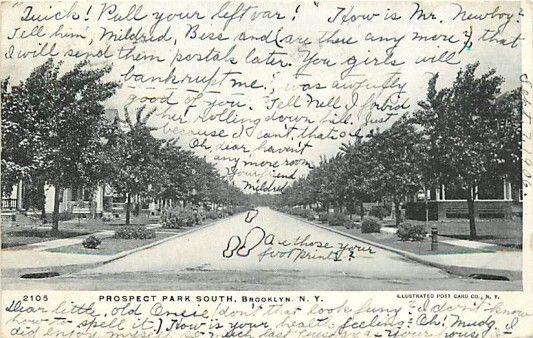 "Quick! Pull your left oar!" "How is Mr. Newboy?
Tell him, Mildred, Bess and (are there any more?) that
I will send them postals later. You girls will
bankrupt me. It was awfully
good of you. Tell Nell I forbid
her rolling down hill just
because I can't, that is all
Oh dear haven't
any more room
your friend
Mildred
Sept. 7, 1906.
Are those your
foot prints?
2105 PROSPECT PARK SOUTH, BROOKLYN, N. Y.
ILLUSTRATED POST CARD CO., N. Y.
Dear little, old Oncie (don't that look funy? I don't know
how to spell it.) How is your health feeling? Oh! Mudg, I
did enjoy my last